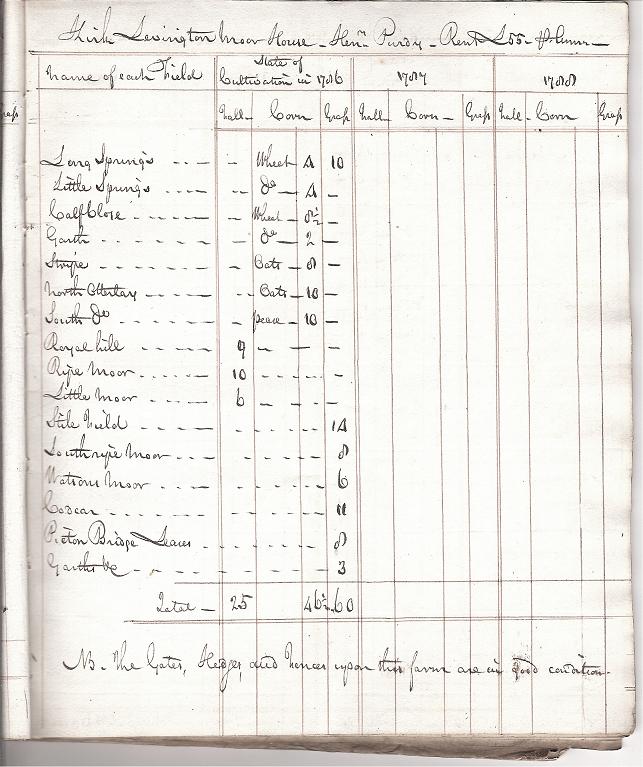 Kirk Levington Moor House - Henry Purdy - Rent £55 - p Annum -
Name of each Field State of Cultivation in 1786 1787 1788
Fall - Corn Grass Fall - Corn - Grass Fall - Corn Grass
Long Springs - Wheat 4 10
Little Springs - Do - 4 -
Calf Close - Wheat - 8½ -
Garth - Do - 2 -
Stripe - Oats - 8 -
North Otterlay - Oats - 10 -
South Do - pease - 10 -
Royal hill 9 - - -
Ripe Moor 10 - -
Little Moor 6 - - -
Stile Field 14
South ripe Moor 8
Watsons Moor 6
Codcar 11
Picton Bridge Leases 8
Garths &c 3
Total - 25 46½ 60
NB - The Gates, Hedges, and Fences upon this farm are in good condition -